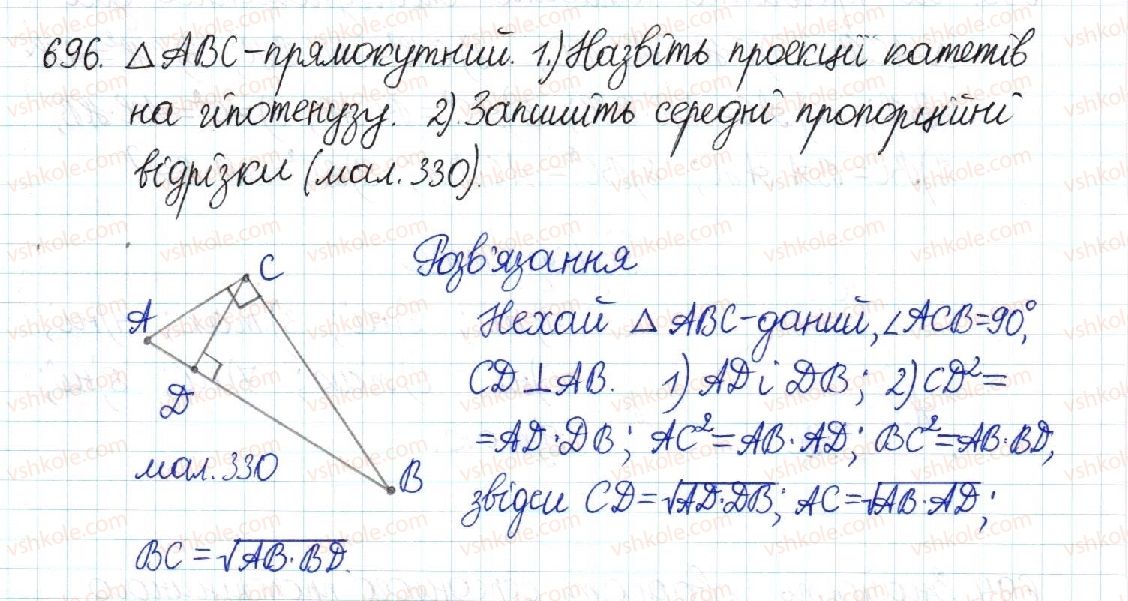 696. △ABC-прямокутний. 1.) Назвіть проекції катетів
на гіпотенузу. 2) Запишіть середні пропорційні
відрізки (мал. 330).
Розв'язання
C
A
D
B
мал. 330
Нехай △ABC-даний, ∠ACB=90°,
CD⊥AB. 1) AD і DB; 2) CD²=
=AD·DB; AC²=AB·AD; BC²=AB·BD,
звідси CD=√AD·DB; AC=√AB·AD;
BC=√AB·BD.
vshkole.com